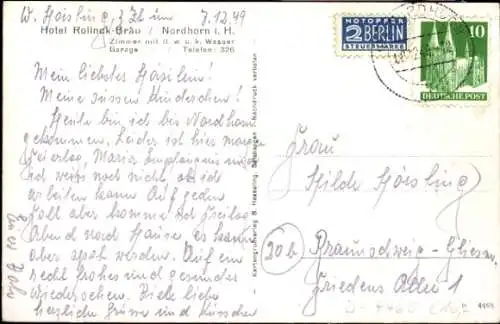 7.12.49
Hotel Rolinck-Bräu / Nordhorn i. H.
Zimmer mit fl. w. u. k. Wasser
Garage Telefon: 326
Mein liebstes Häslein!
Meine süssen Kinderchen!
Heute bin ich bis Nordhorn
gekommen. Leider ist hier morgen
Feiertag, Maria Empfängnis und
ich weiss noch nicht, ob ich
arbeiten kann. Auf jeden
Fall aber komme ich Freitag
Abend nach Hause, es kann
aber spät werden. Auf ein
recht frohes und gesundes
Wiedersehen. Viele liebe
herzliche Grüsse und Küsschen
Kartengrossverlag B. Hesseling,
Nachdruck verboten
NOTOPFER
2 BERLIN
STEUERMARKE
10
DEUTSCHE POST
Frau
Hilde
20b Braunschweig-Gliesm.
Friedens Allee 1